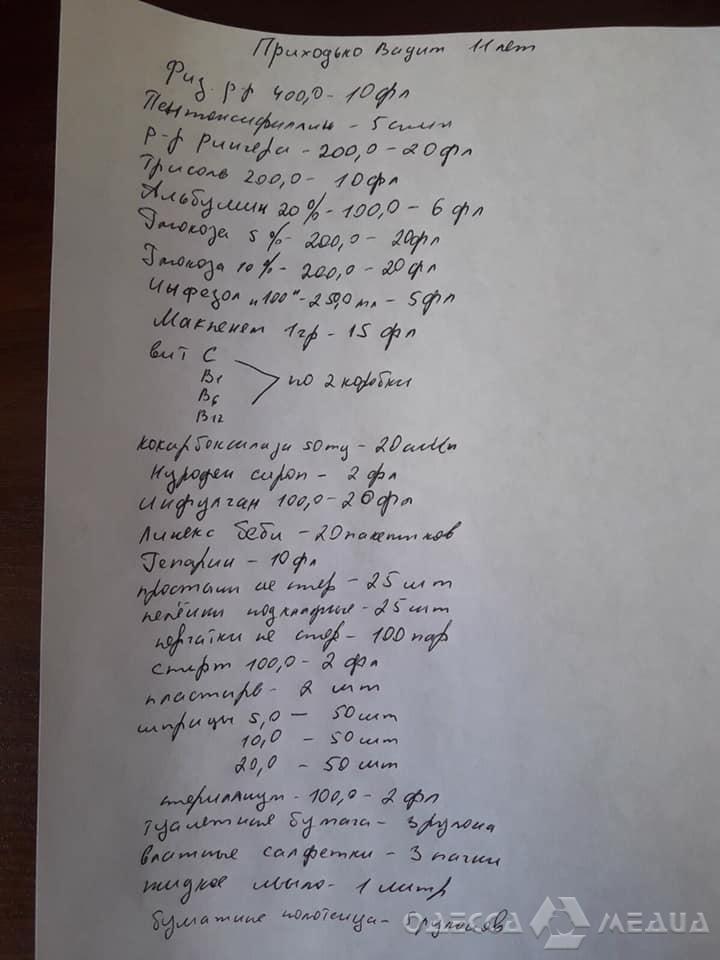 Приходько Вадим 11 лет
Физ. р-р 400,0 - 10 фл
Пентоксифиллин - 5 амп
р-р Рингера - 200,0 - 20 фл
Трисоль 200,0 - 10 фл
Альбумин 20% - 100,0 - 6 фл
Глюкоза 5% - 200,0 - 20 фл
Глюкоза 10% - 200,0 - 20 фл
Инфезол "100" - 250,0 мл - 5 фл
Макпенем 1 гр - 15 фл
вит C
B1
B6 по 2 коробки
B12
кокарбоксилаза 50 mg - 20 амп
Нурофен сироп - 2 фл
Инфулган 100,0 - 20 фл
Линекс беби - 20 пакетиков
Гепарин - 10 фл
простыни не стер - 25 шт
пелёнки подкладные - 25 шт
перчатки не стер - 100 пар
спирт 100,0 - 2 фл
пластырь - 2 шт
шприцы 5,0 - 50 шт
10,0 - 50 шт
20,0 - 50 шт
стериллиум - 100,0 - 2 фл
туалетные бумага - 3 рулона
влажные салфетки - 3 пачки
жидкое мыло - 1 литр
бумажные полотенца - 5 рулонов
ОДЕССА МЕДИА